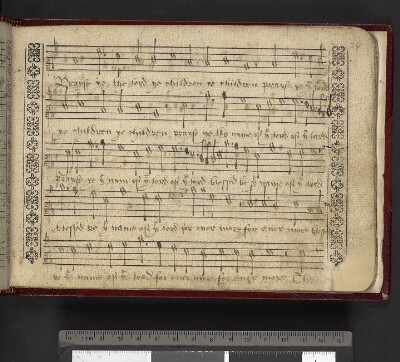 Prayse ye the lord ye children ye children prayse ye yͤ lord
ye children ye children prayse ye the name of yͤ lord of yͤ lord
Prayse ye yͤ name of yͤ lord of yͤ lord blessed be yͤ name of yͤ lord
blessed be yͤ name of yͤ lord for ever more for ever more blessed
be yͤ name of yͤ lord for ever more for ever more The